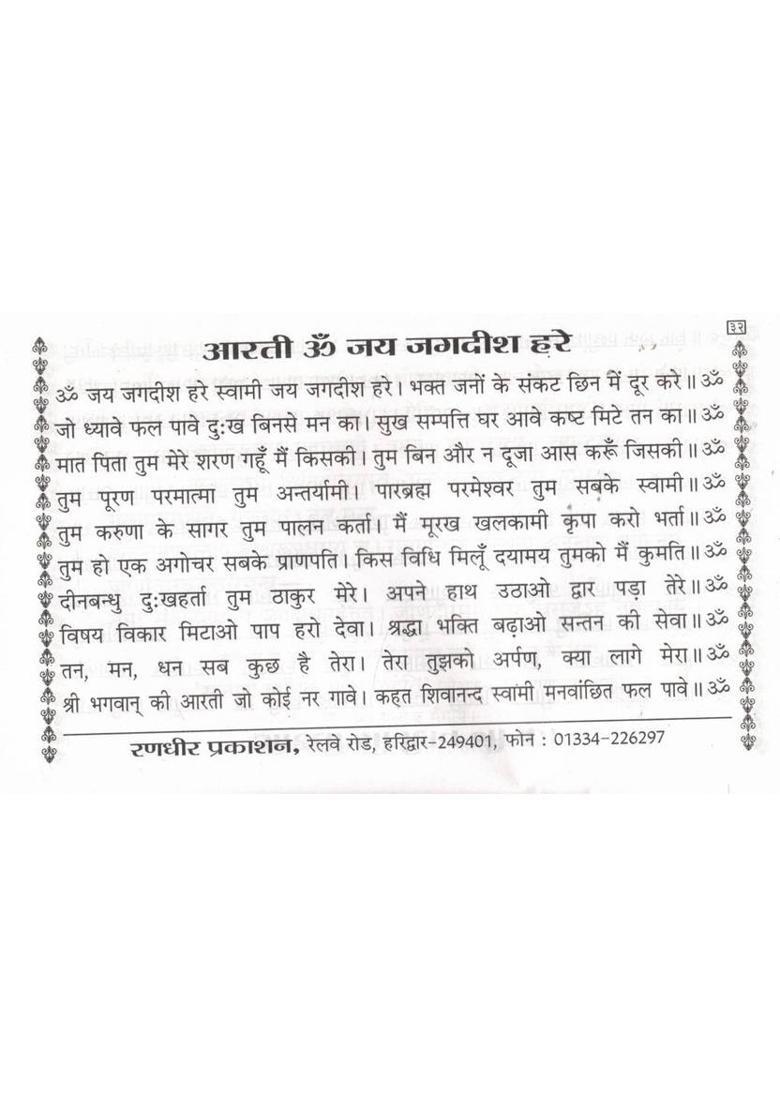 ३२
आरती ॐ जय जगदीश हरे
ॐ जय जगदीश हरे स्वामी जय जगदीश हरे। भक्त जनों के संकट छिन में दूर करे॥ॐ
जो ध्यावे फल पावे दुःख बिनसे मन का। सुख सम्पत्ति घर आवे कष्ट मिटे तन का॥ॐ
मात पिता तुम मेरे शरण गहूँ मैं किसकी। तुम बिन और न दूजा आस करूँ जिसकी॥ॐ
तुम पूरण परमात्मा तुम अन्तर्यामी। पारब्रह्म परमेश्वर तुम सबके स्वामी॥ॐ
तुम करुणा के सागर तुम पालन कर्ता। मैं मूरख खलकामी कृपा करो भर्ता॥ॐ
तुम हो एक अगोचर सबके प्राणपति। किस विधि मिलूँ दयामय तुमको मैं कुमति॥ॐ
दीनबन्धु दुःखहर्ता तुम ठाकुर मेरे। अपने हाथ उठाओ द्वार पड़ा तेरे॥ॐ
विषय विकार मिटाओ पाप हरो देवा। श्रद्धा भक्ति बढ़ाओ सन्तन की सेवा॥ॐ
तन, मन, धन सब कुछ है तेरा। तेरा तुझको अर्पण, क्या लागे मेरा॥ॐ
श्री भगवान् की आरती जो कोई नर गावे। कहत शिवानन्द स्वामी मनवांछित फल पावे॥ॐ
रणधीर प्रकाशन, रेलवे रोड, हरिद्वार-249401, फोन : 01334-226297